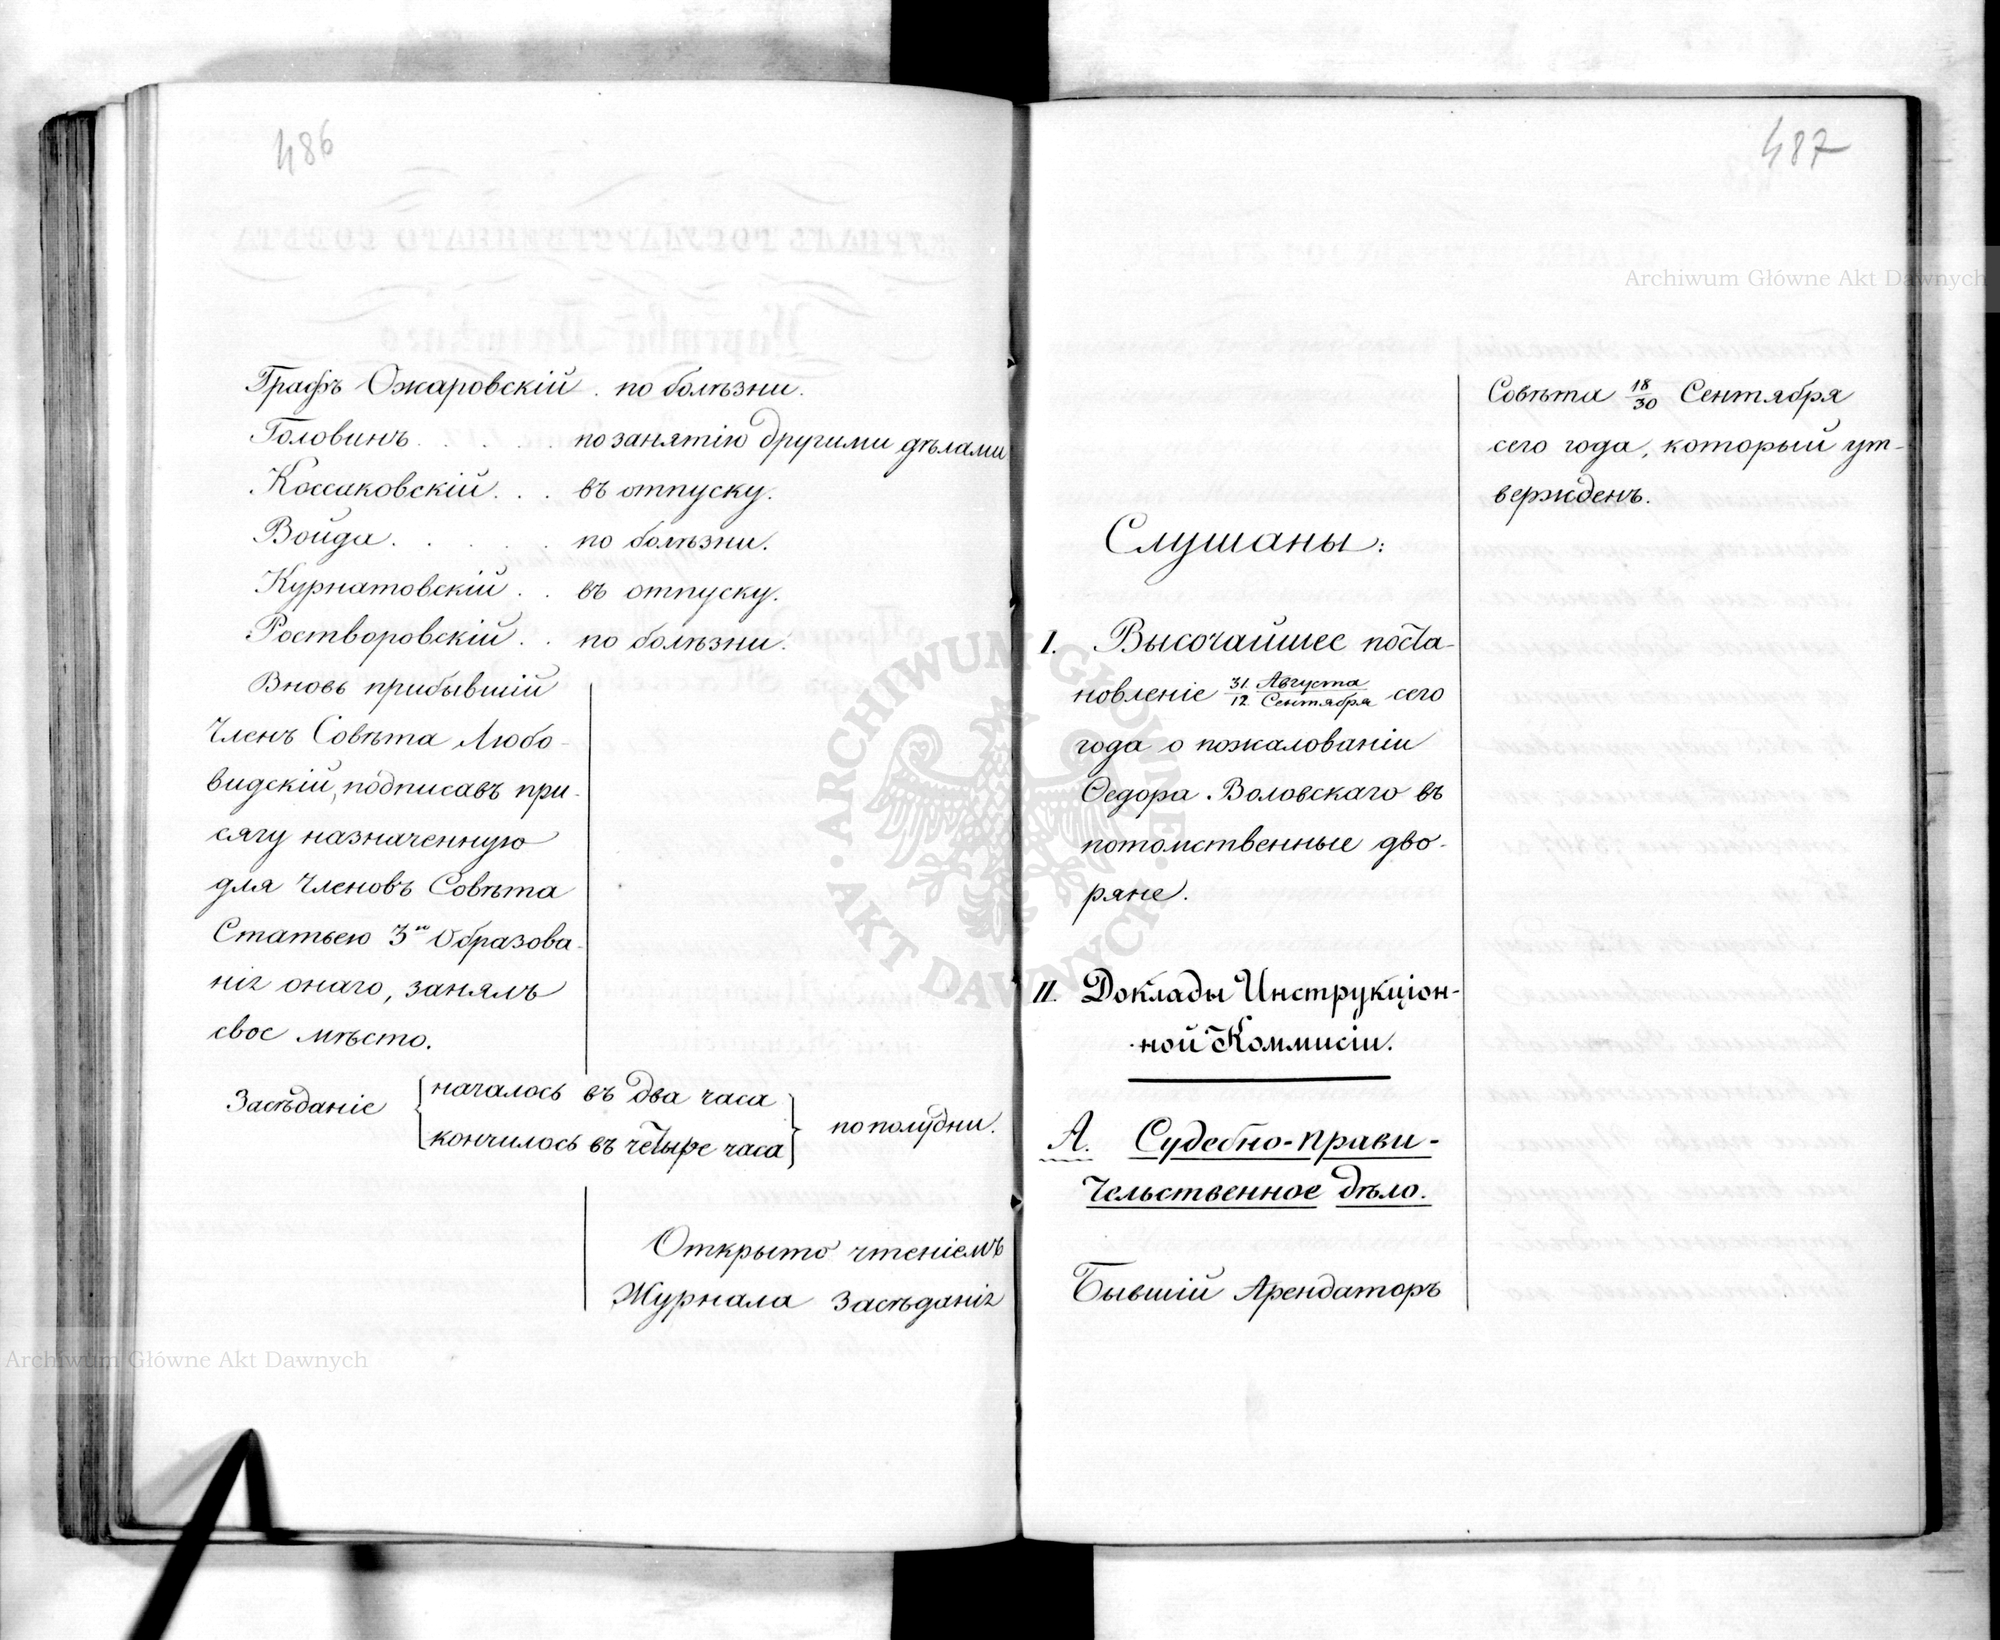 486
Графъ Ожаровскій . по болѣзни.
Головинъ . . . . . по занятію другими дѣлами
Коссаковскій . . . въ отпуску.
Война . . . . . по болѣзни.
Курнатовскій . . въ отпуску.
Ростворовскій . . по болѣзни.
Вновь прибывшій
Членъ Совѣта Любо-
видскій, подписавъ при-
сягу назначенную
для Членовъ Совѣта
Статьею 3ю Образова-
нія онаго, занялъ
свое мѣсто.
Засѣданіе { началось въ два часа
кончилось въ четыре часа } по полудни.
Открыто чтеніемъ
Журнала Засѣданія
487
Совѣта 18/30 Сентября
сего года, который ут-
вержденъ.
Слушаны:
I. Высочайшее поста-
новленіе 31 Августа/12 Сентября сего
года о пожалованіи
Ѳедора Воловскаго въ
потомственные дво-
ряне.
II. Доклады Инструкціон-
ной Коммисіи.
А. Судебно-прави-
тельственное дѣло.
Бывшій Арендаторъ
Archiwum Główne Akt Dawnych
Archiwum Główne Akt Dawnych
ARCHIWUM GŁÓWNE AKT DAWNYCH